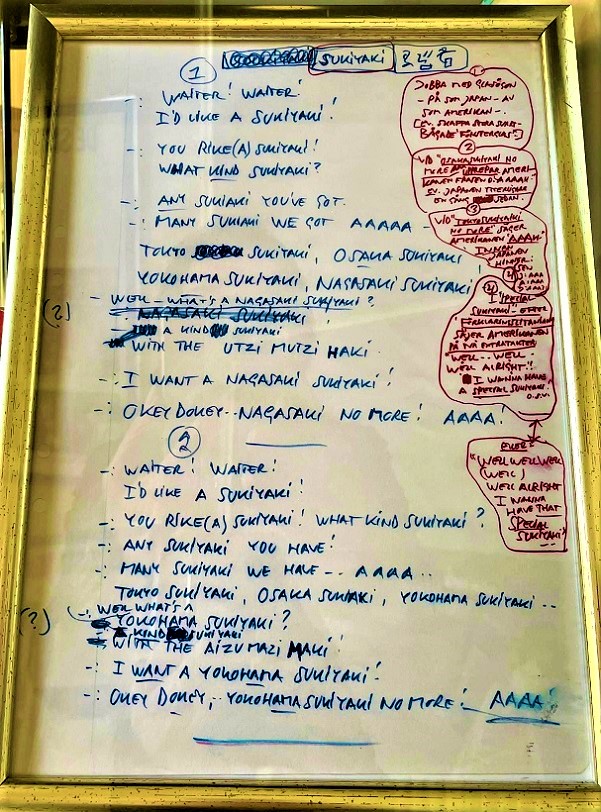 SUKIYAKI
1
-: WAITER! WAITER!
I'D LIKE A SUKIYAKI!
-: YOU RIKE(A) SUKIYAKI!
WHAT KIND SUKIYAKI?
-: ANY SUKIAKI YOU'VE GOT.
-: MANY SUKIAKI WE GOT AAAAA -
TOKYO SUKIYAKI, OSAKA SUKIYAKI
YOKOHAMA SUKIYAKI, NAGASAKI SUKIYAKI!
(?) -: WELL - WHAT'S A NAGASAKI SUKIYAKI?
NAGASAKI SUKIYAKI!
A KIND SUKIYAKI
WITH THE UTZI MUTZI HAKI.
-: I WANT A NAGASAKI SUKIYAKI!
-: OKEY DOKEY -- NAGASAKI NO MORE! AAAA!
2
-: WAITER! WAITER!
I'D LIKE A SUKIYAKI!
-: YOU RIKE(A) SUKIYAKI! WHAT KIND SUKIYAKI?
-: ANY SUKIYAKI YOU HAVE!
-: MANY SUKIYAKI WE HAVE --- AAAA..
TOKYO SUKIYAKI, OSAKA SUKIYAKI, YOKOHAMA SUKIYAKI --
(?) -: WELL WHAT'S A
YOKOHAMA SUKIYAKI?
A KIND SUKIYAKI
WITH THE AIZUMAZI MAKI!
-: I WANT A YOKOHAMA SUKIYAKI!
-: OKEY DOKEY, - YOKOHAMA SUKIYAKI NO MORE! AAAA!
1
JOBBA MED
- PÅ SOM JAPAN - AV
SOM AMERIKAN -
2
VID "OSAKA SUKIYAKI NO
MORE"
JAPANEN
EN GÅNG
3
VID "TOKYO SUKIYAKI
NO MORE" SÄGER
AMERIKANEN "AAAA"
INNAN
JAPANEN
HINNER!
4
I "SPECIAL
SUKIYAKI" - EFTER
SÄJER AMERIKANEN
PÅ TVÅ EXTRATAKTER
"WELL -- WELL -
WELL ALRIGHT!!
I WANNA HAVE
A SPECIAL SUKIYAKI.
O.S.V.
ELLER:
"WELL WELL WELL
(WELL)
WELL ALRIGHT
I WANNA
HAVE THAT
SPECIAL
SUKIYAKI"